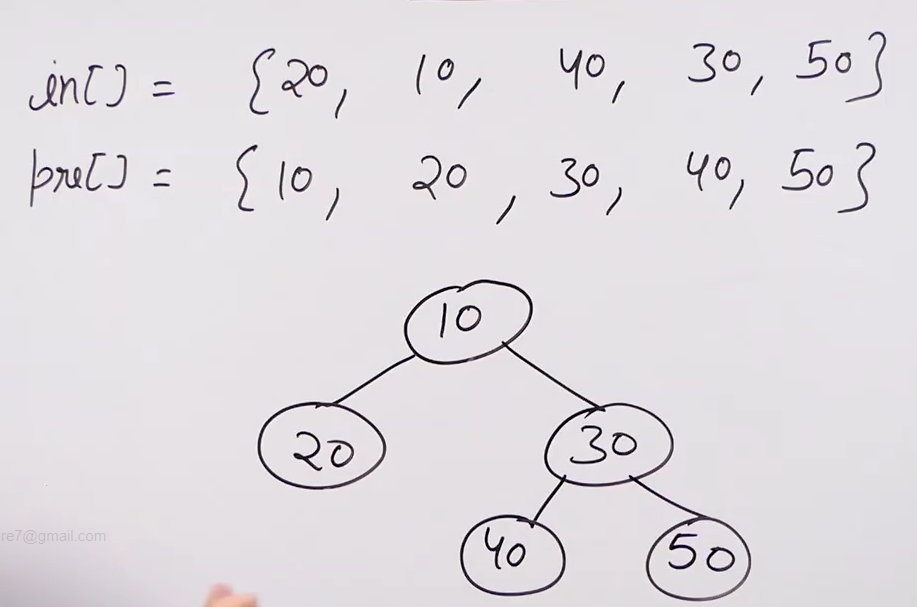 in[] = {20, 10, 40, 30, 50}
pre[] = {10, 20, 30, 40, 50}
10
20 30
re7@gmail.com
40 50